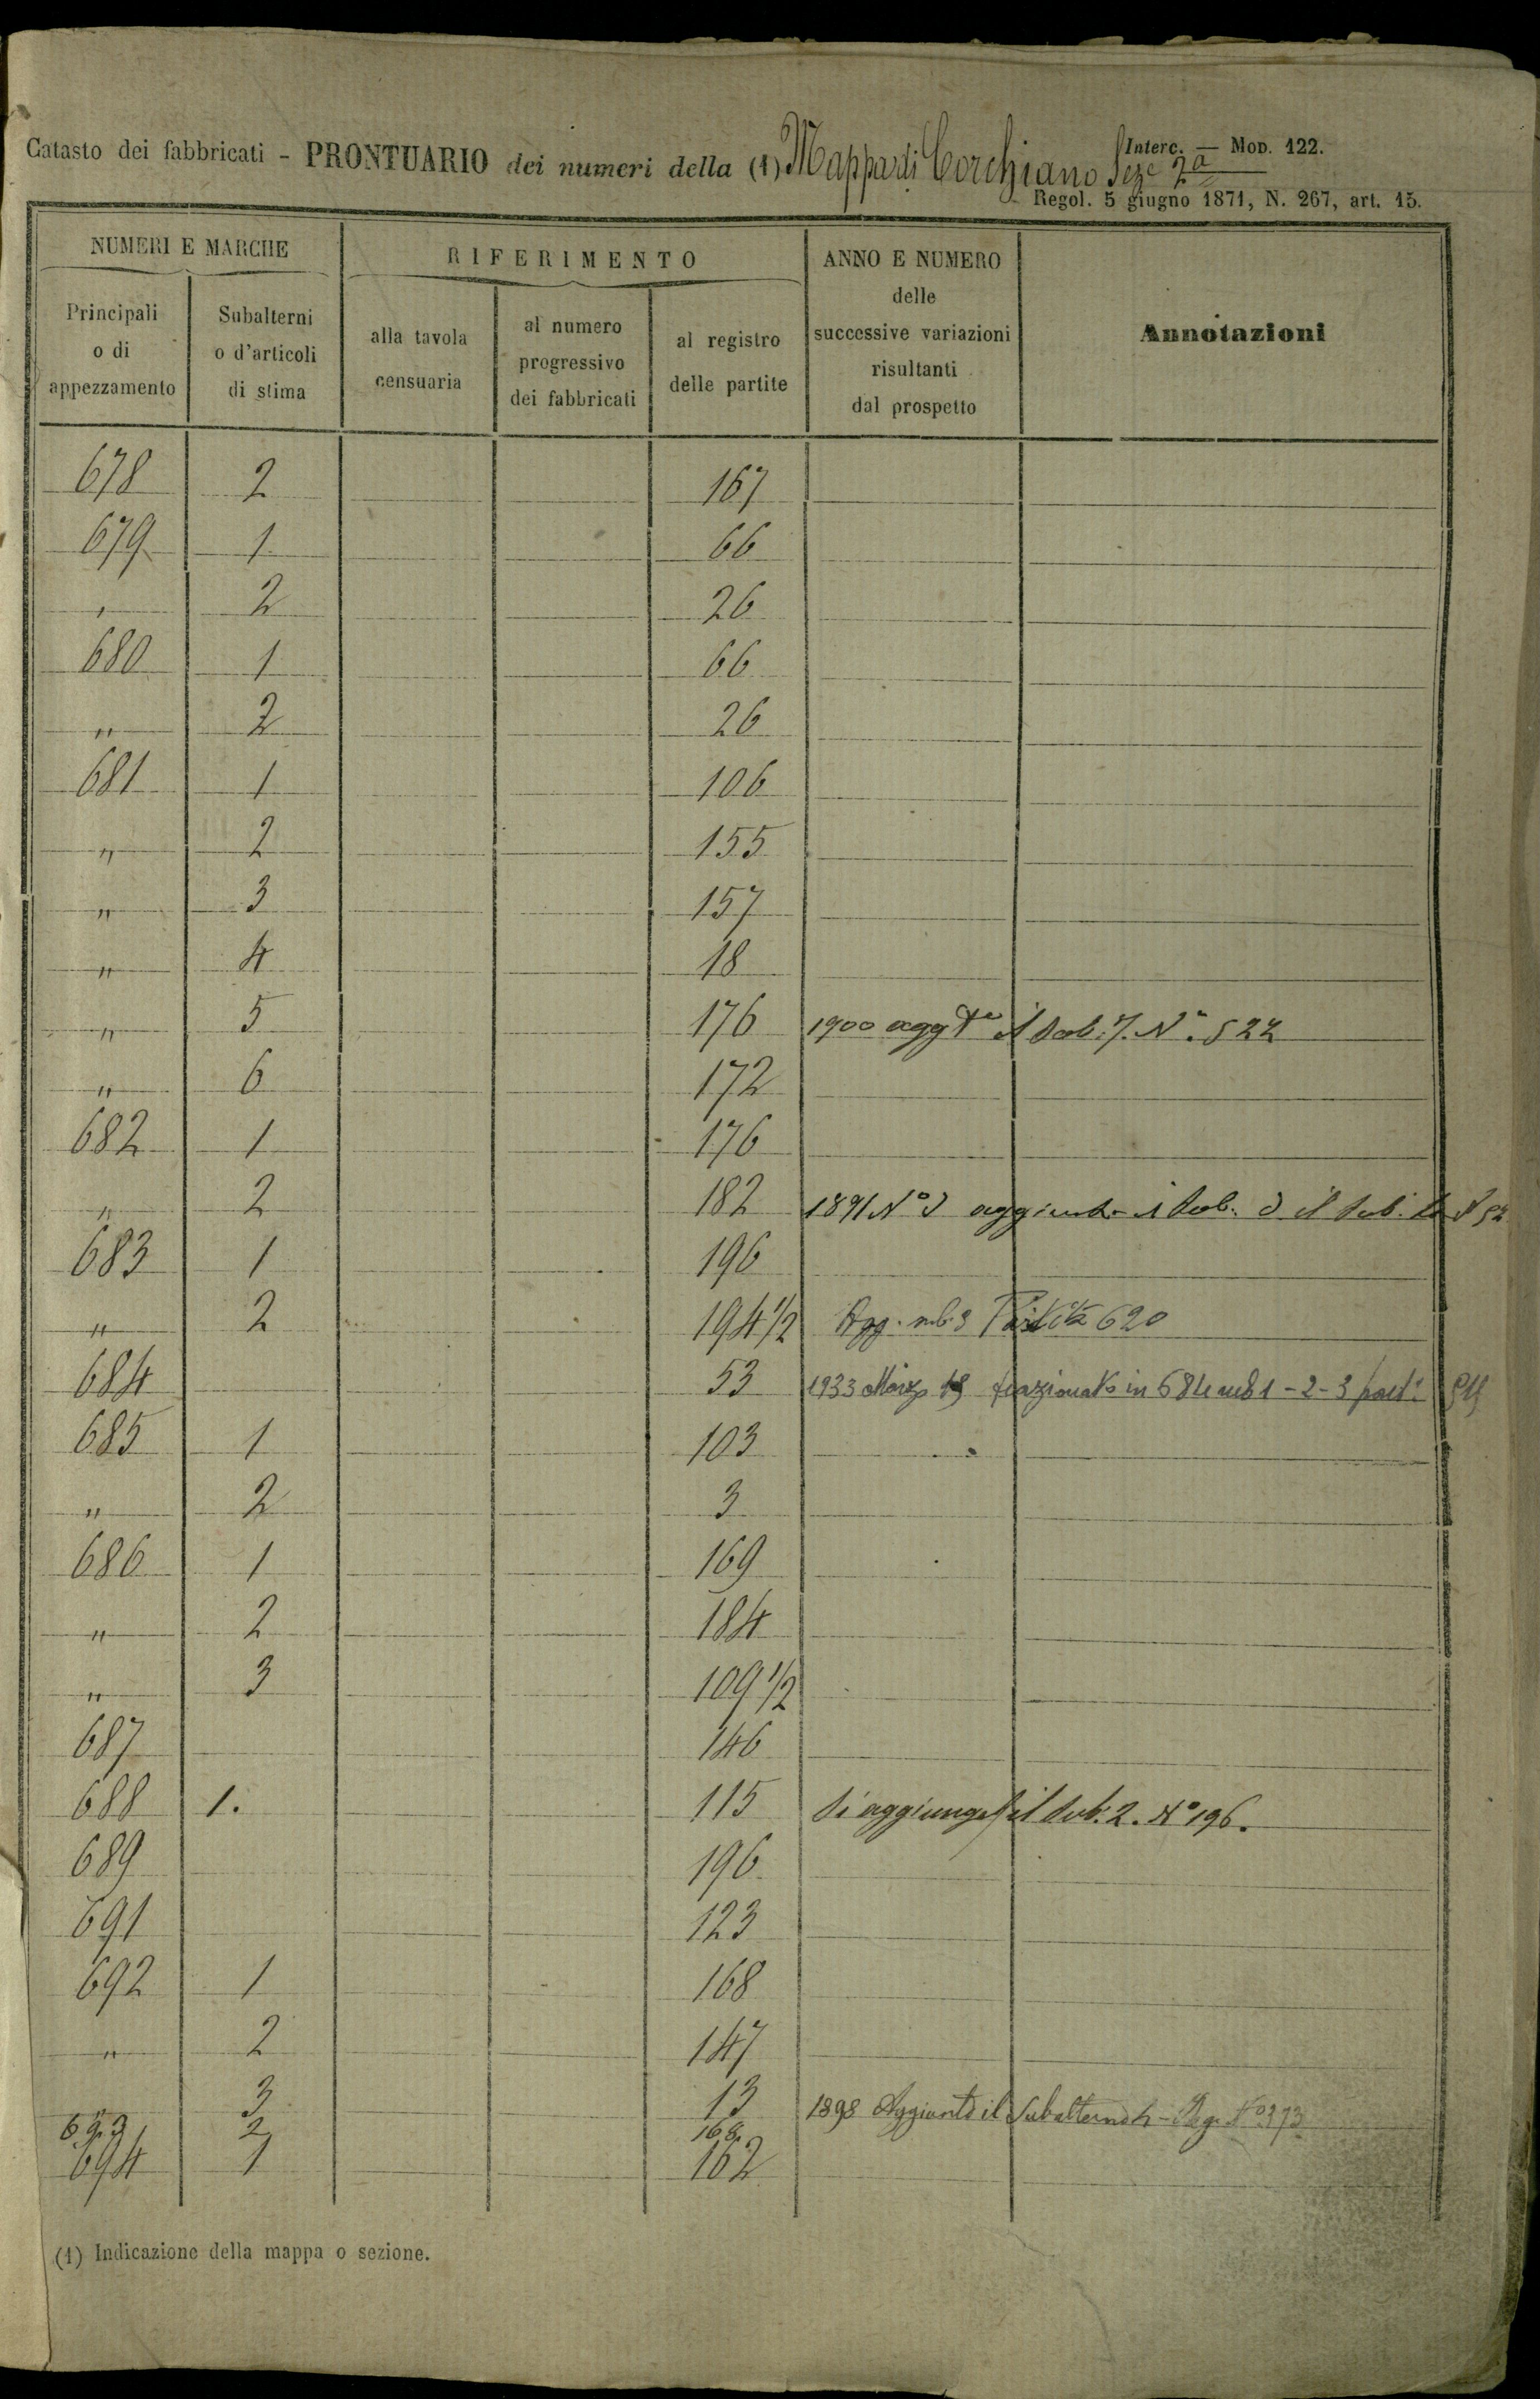 Interc. — Mod. 122.
Catasto dei fabbricati - PRONTUARIO dei numeri della (1) Mappa di Corchiano Seze 2ª
Regol. 5 giugno 1871, N. 267, art. 15.
NUMERI E MARCHE RIFERIMENTO ANNO E NUMERO delle successive variazioni risultanti dal prospetto Annotazioni
Principali o di appezzamento Subalterni o d'articoli di stima alla tavola censuaria al numero progressivo dei fabbricati al registro delle partite
678 2 167
679 1 66
" 2 26
680 1 66
" 2 26
681 1 106
" 2 155
" 3 157
" 4 18
" 5 176 1900 aggto il sub. 7. N° 522
" 6 172
682 1 176
" 2 182 1891 N° 3 aggiunto il sub. 3 il sub.
683 1 196
" 2 194 1/2 Agg. sub. 3 Partita 620
684 53 1933 Marzo frazionato in 684 sub 1 - 2 - 3 part.
685 1 103
" 2 3
686 1 169
" 2 184
" 3 109 1/2
687 146
688 1. 115 Si aggiunge il sub. 2. N° 196.
689 196
691 123
692 1 168
" 2 147
" 3 13 1898 Aggiunto il Subalterno 4 - Reg. N° 373
693 2 168
694 1 162
(1) Indicazione della mappa o sezione.